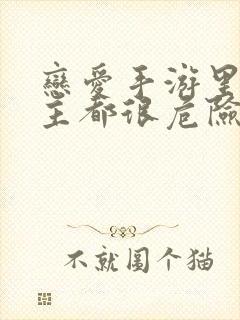 戀愛手游里
主都很危險
不就圍个猫